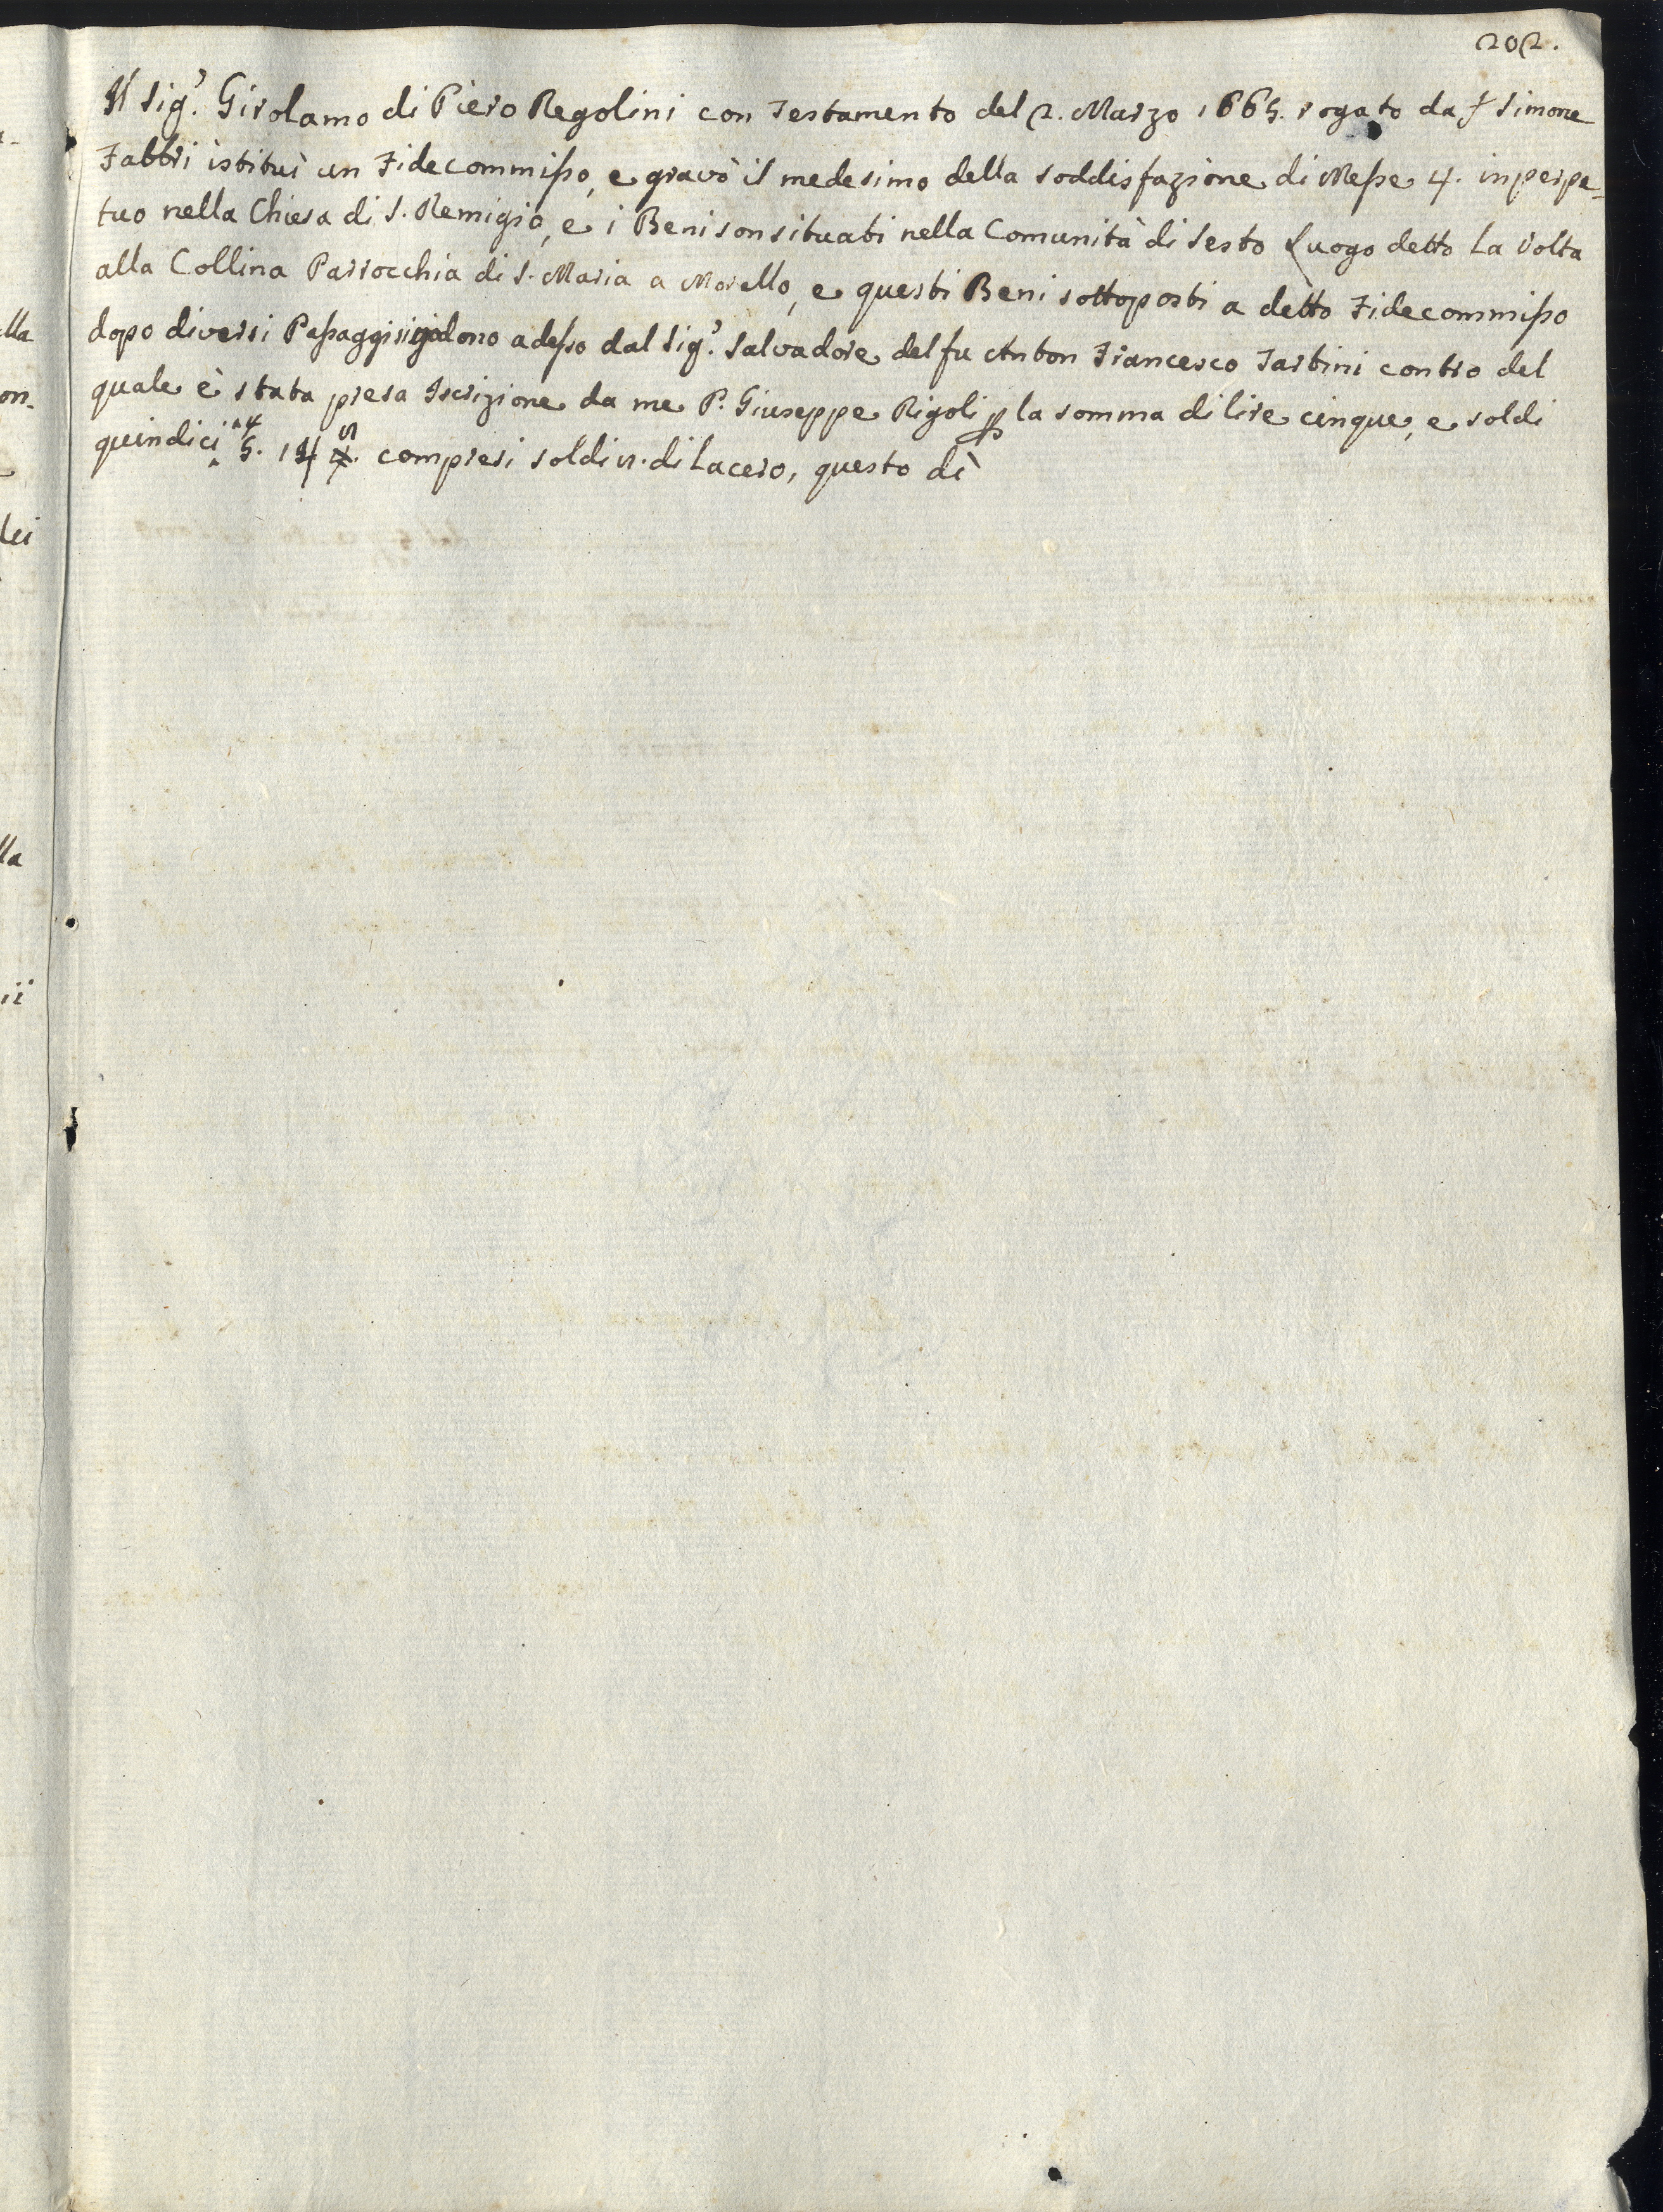 202.
Il Sig.r Girolamo di Piero Regolini con Testamento del 2. Marzo 1665. rogato da S Simone
Fabbri istituì un Fidecommisso, e gravò il medesimo della soddisfazione di Messe 4. in perpe-
tuo nella Chiesa di S. Remigio, e i Beni son situati nella Comunità di Sesto Luogo detto La Volta
alla Collina Parrocchia di S. Maria a Morello, e questi Beni sottoposti a detto Fidecommisso
dopo diversi Passaggi si godono adesso dal Sig.r Salvadore del fu Anton Francesco Tartini contro del
quale è stata presa Iscrizione da me P. Giuseppe Rigoli p la somma di lire cinque, e soldi
quindici 5. 14 compresi soldi di Lacero, questo dì